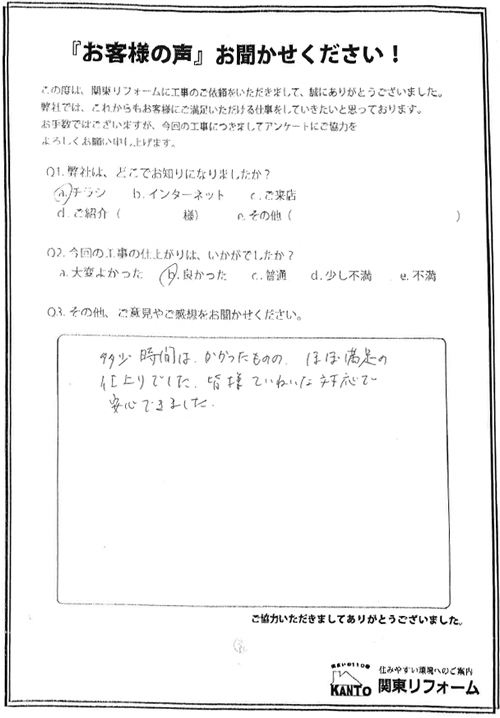 『お客様の声』お聞かせください！
この度は、関東リフォームに工事のご依頼をいただきまして、誠にありがとうございました。
弊社では、これからもお客様にご満足いただける仕事をしていきたいと思っております。
お手数ではございますが、今回の工事につきましてアンケートにご協力を
よろしくお願い申し上げます。
Q1. 弊社は、どこでお知りになりましたか？
a. チラシ b. インターネット c. ご来店
d. ご紹介（ 様） e. その他（ ）
Q2. 今回の工事の仕上がりは、いかがでしたか？
a. 大変よかった b. 良かった c. 普通 d. 少し不満 e. 不満
Q3. その他、ご意見やご感想をお聞かせください。
多少時間は、かかったものの、ほぼ満足の
仕上りでした。皆様ていねいな対応で
安心できました。
ご協力いただきましてありがとうございました。
住まいの110番
KANTO
住みやすい環境へのご案内
関東リフォーム